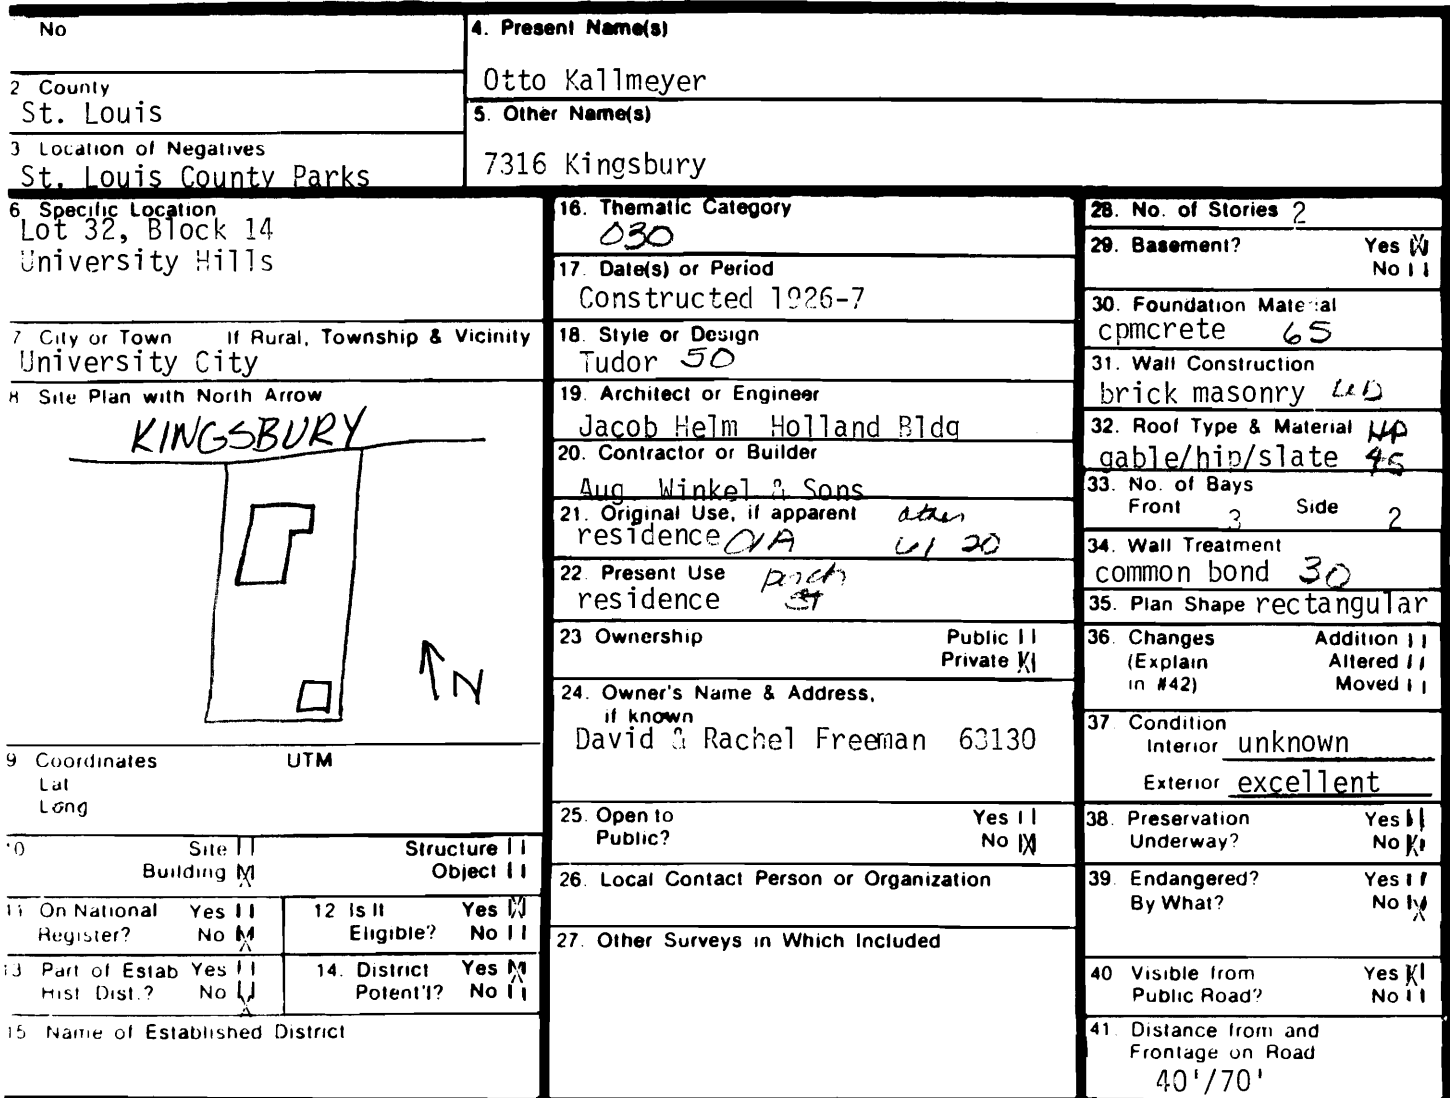 No
4. Present Name(s)
Otto Kallmeyer
2 County
St. Louis
5. Other Name(s)
7316 Kingsbury
3 Location of Negatives
St. Louis County Parks
6 Specific Location
Lot 32, Block 14
University Hills
7 City or Town If Rural, Township & Vicinity
University City
8 Site Plan with North Arrow
KINGSBURY
N
9 Coordinates UTM
Lat
Long
10 Site Structure
Building X Object
11 On National Register? Yes No X
12 Is It Eligible? Yes X No
13 Part of Estab Hist Dist.? Yes No X
14. District Potent'l? Yes X No
15 Name of Established District
16. Thematic Category
030
17. Date(s) or Period
Constructed 1926-7
18. Style or Design
Tudor 50
19. Architect or Engineer
Jacob Helm Holland Bldg
20. Contractor or Builder
Aug. Winkel & Sons
21. Original Use, if apparent other
residence 01A 20
22. Present Use porch
residence
23 Ownership Public
Private X
24. Owner's Name & Address,
if known
David & Rachel Freeman 63130
25. Open to Yes
Public? No X
26. Local Contact Person or Organization
27. Other Surveys in Which Included
28. No. of Stories 2
29. Basement? Yes X
No
30. Foundation Material
cpmcrete 65
31. Wall Construction
brick masonry
32. Roof Type & Material
gable/hip/slate 45
33. No. of Bays
Front 3 Side 2
34. Wall Treatment
common bond 30
35. Plan Shape rectangular
36. Changes Addition
(Explain Altered
in #42) Moved
37. Condition
Interior unknown
Exterior excellent
38. Preservation Yes
Underway? No X
39. Endangered? Yes
By What? No X
40 Visible from Yes X
Public Road? No
41. Distance from and
Frontage on Road
40'/70'